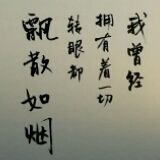 我曾经
拥有着一切
转眼都
飘散如烟